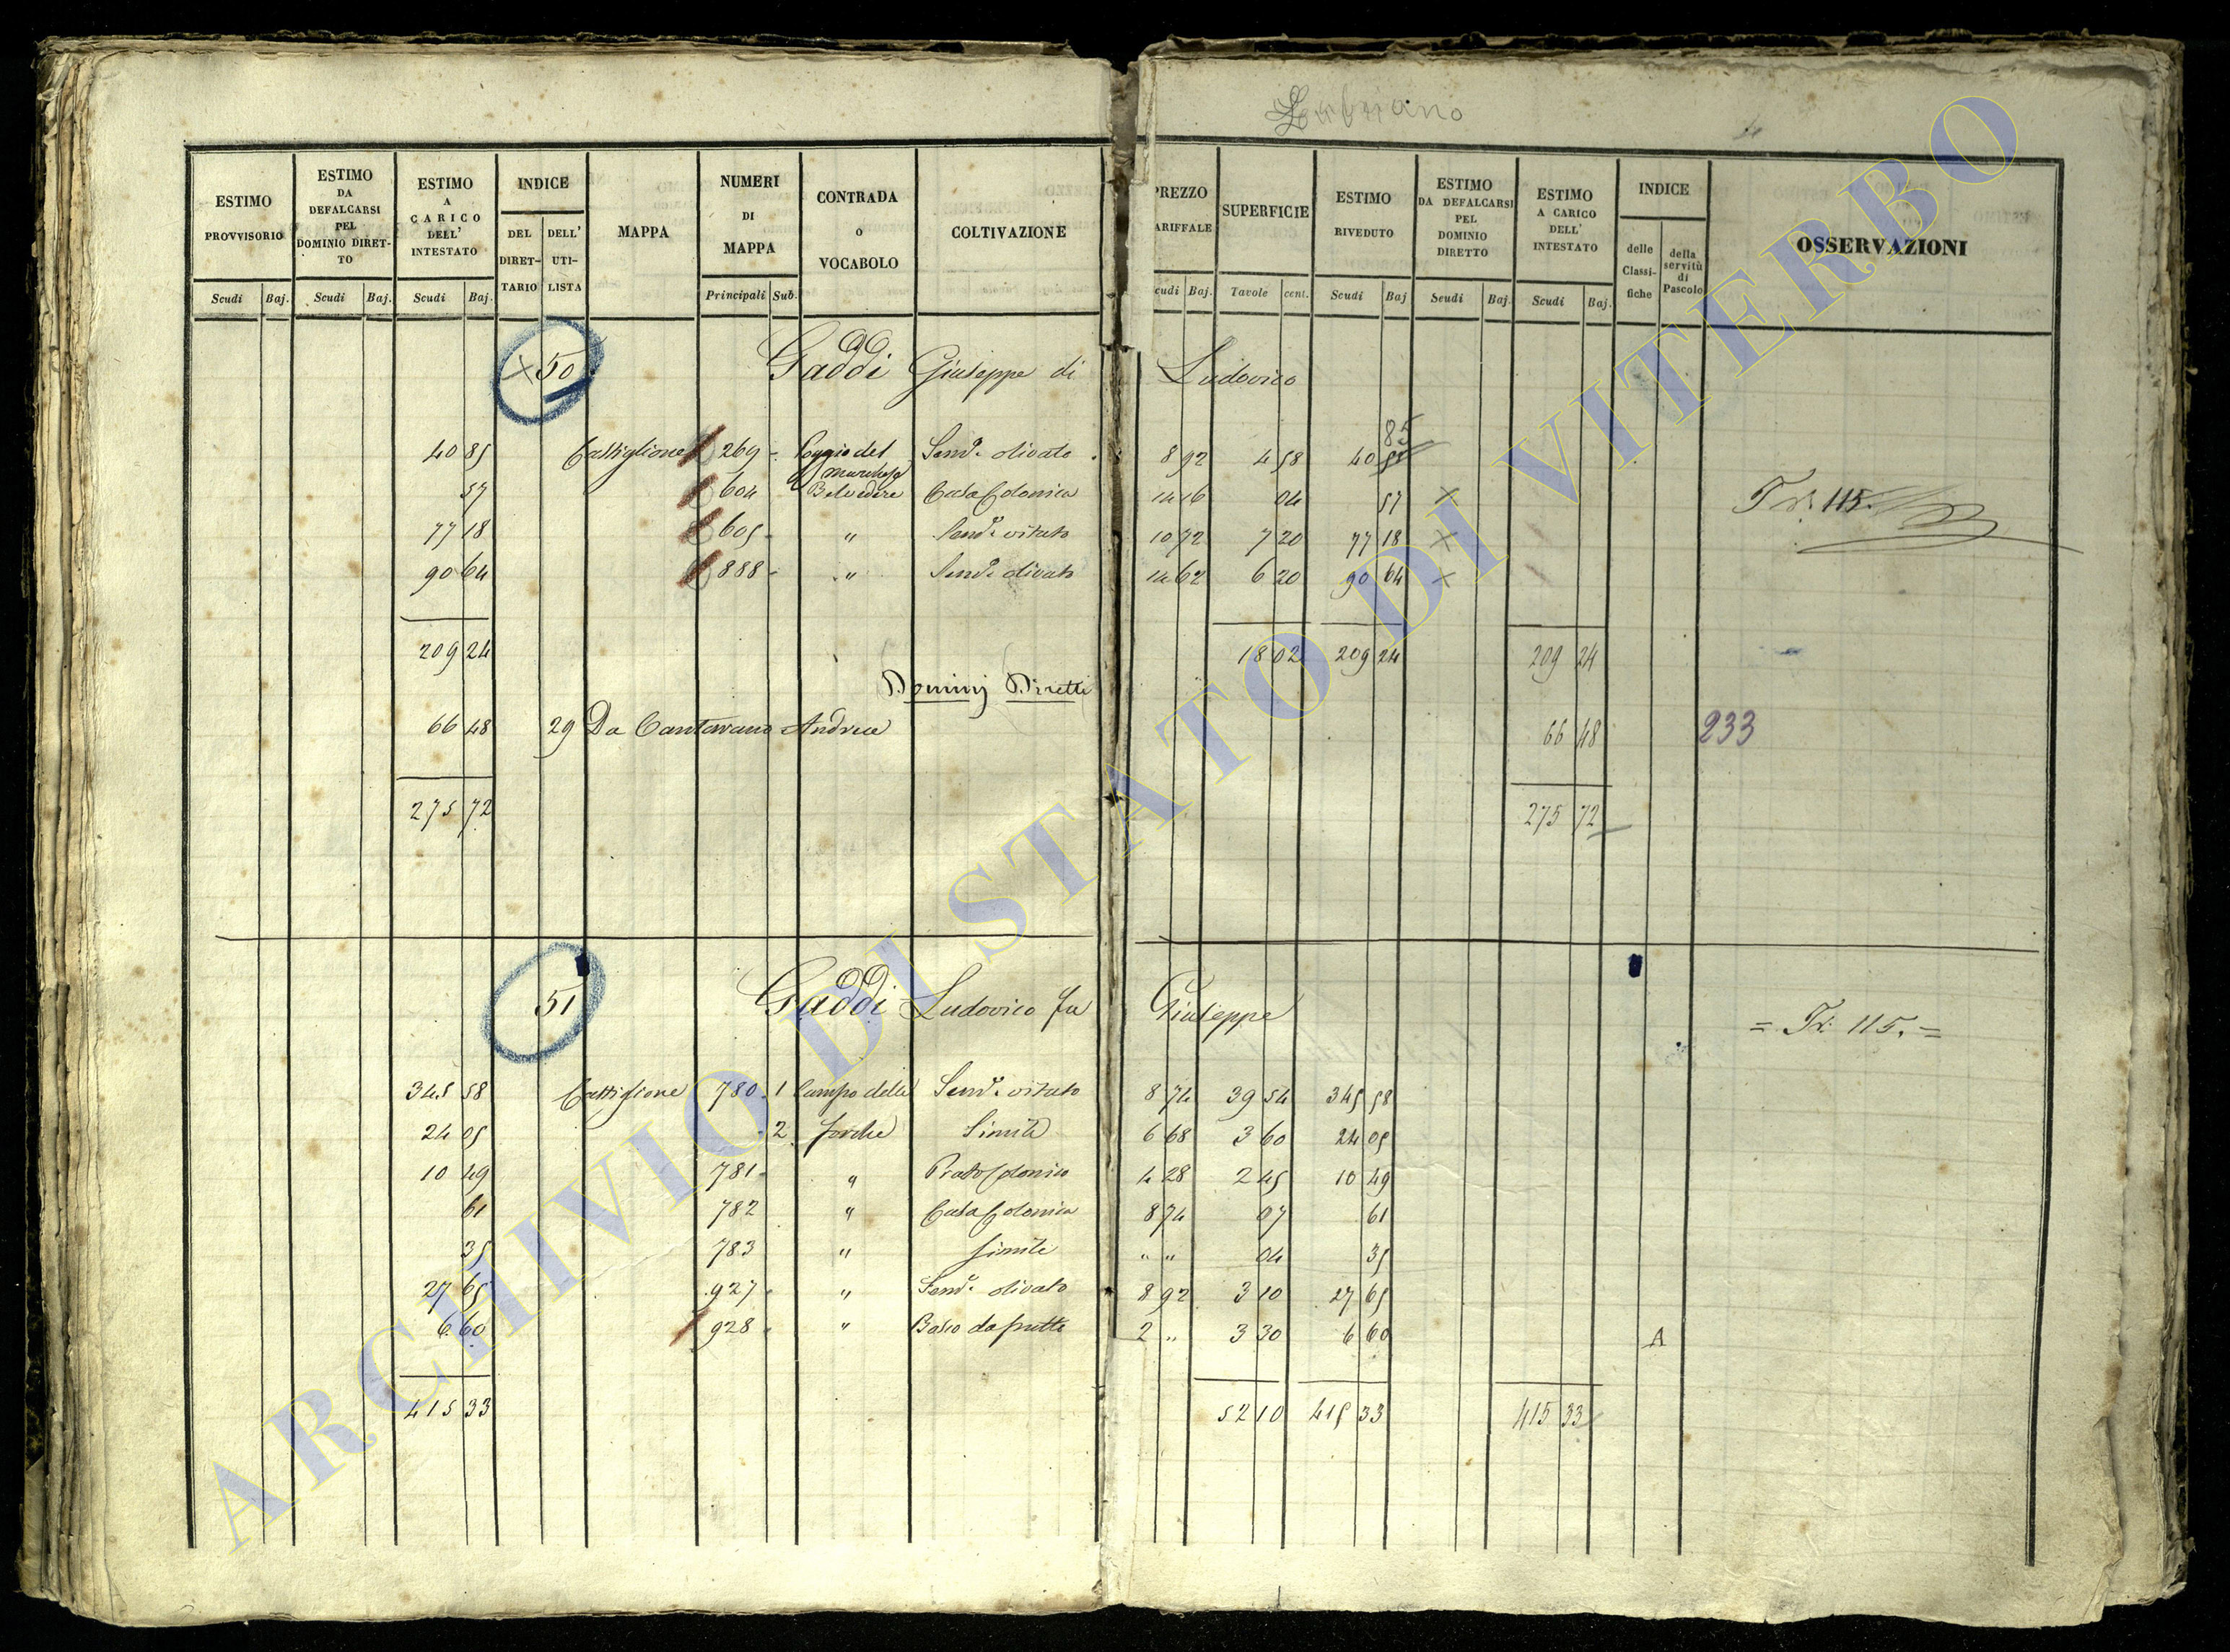 Lubriano
ESTIMO PROVVISORIO
Scudi Baj.
ESTIMO DA DEFALCARSI PEL DOMINIO DIRETTO
Scudi Baj.
ESTIMO A CARICO DELL' INTESTATO
Scudi Baj.
INDICE
DEL DIRETTARIO
DELL' UTILISTA
MAPPA
NUMERI DI MAPPA
Principali Sub.
CONTRADA o VOCABOLO
COLTIVAZIONE
PREZZO
ARIFFALE
cudi Baj.
SUPERFICIE
Tavole cent.
ESTIMO RIVEDUTO
Scudi Baj
ESTIMO DA DEFALCARSI PEL DOMINIO DIRETTO
Scudi Baj.
ESTIMO A CARICO DELL' INTESTATO
Scudi Baj.
INDICE
delle Classifiche
della servitù di Pascolo
OSSERVAZIONI
50 Gaddi Giuseppe di Ludovico
85
40 85 Castiglione 269 - Poggio del Semve olivato 8 92 4 58 40
57 604 Belvedere Casa Colonica 14 16 04 57 × Tr: 115.
77 18 605 - " Semvo vitato 10 72 7 20 77 18 ×
90 64 888 - " Semvo olivato 14 62 6 20 90 64 ×
209 24 18 02 209 24 209 24
Dominj Diretti
66 48 29 Da Cantarano Andrea 66 48 233
275 72 275 72
51 Gaddi Ludovico fu Giuseppe = Tr: 115. =
345 58 Castiglione 780 1 Campo delle Semvo vitato 8 74 39 54 345 58
24 05 2 forche Simile 6 68 3 60 24 05
10 49 781 - " Prato Colonico 4 28 2 45 10 49
61 782 " Casa Colonica 8 74 07 61
35 783 " Simile " " 04 35
27 65 927 - " Semvo olivato 8 92 3 10 27 65
6 60 928 " Bosco da frutto 2 " 3 30 6 60 A
415 33 52 10 415 33 415 33
ARCHIVIO DI STATO DI VITERBO